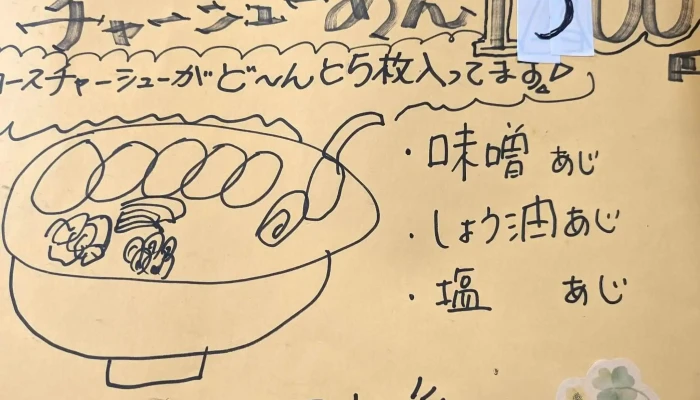 チャーシューめん 1300
ロースチャーシューがど〜んと5枚入ってます♪
・味噌 あじ
・しょう油あじ
・塩 あじ